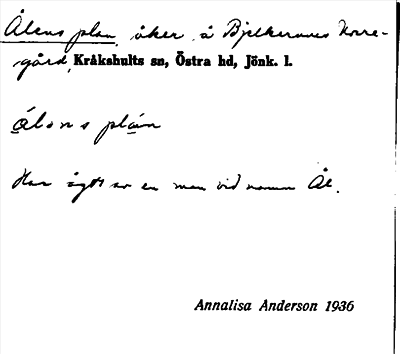 Ålens plan, åker å Bjelkernas Norre-
gård, Kråkshults sn, Östra hd, Jönk. l.
ålǝns plán
Har ägts av en man vid namn Ål.
Annalisa Anderson 1936